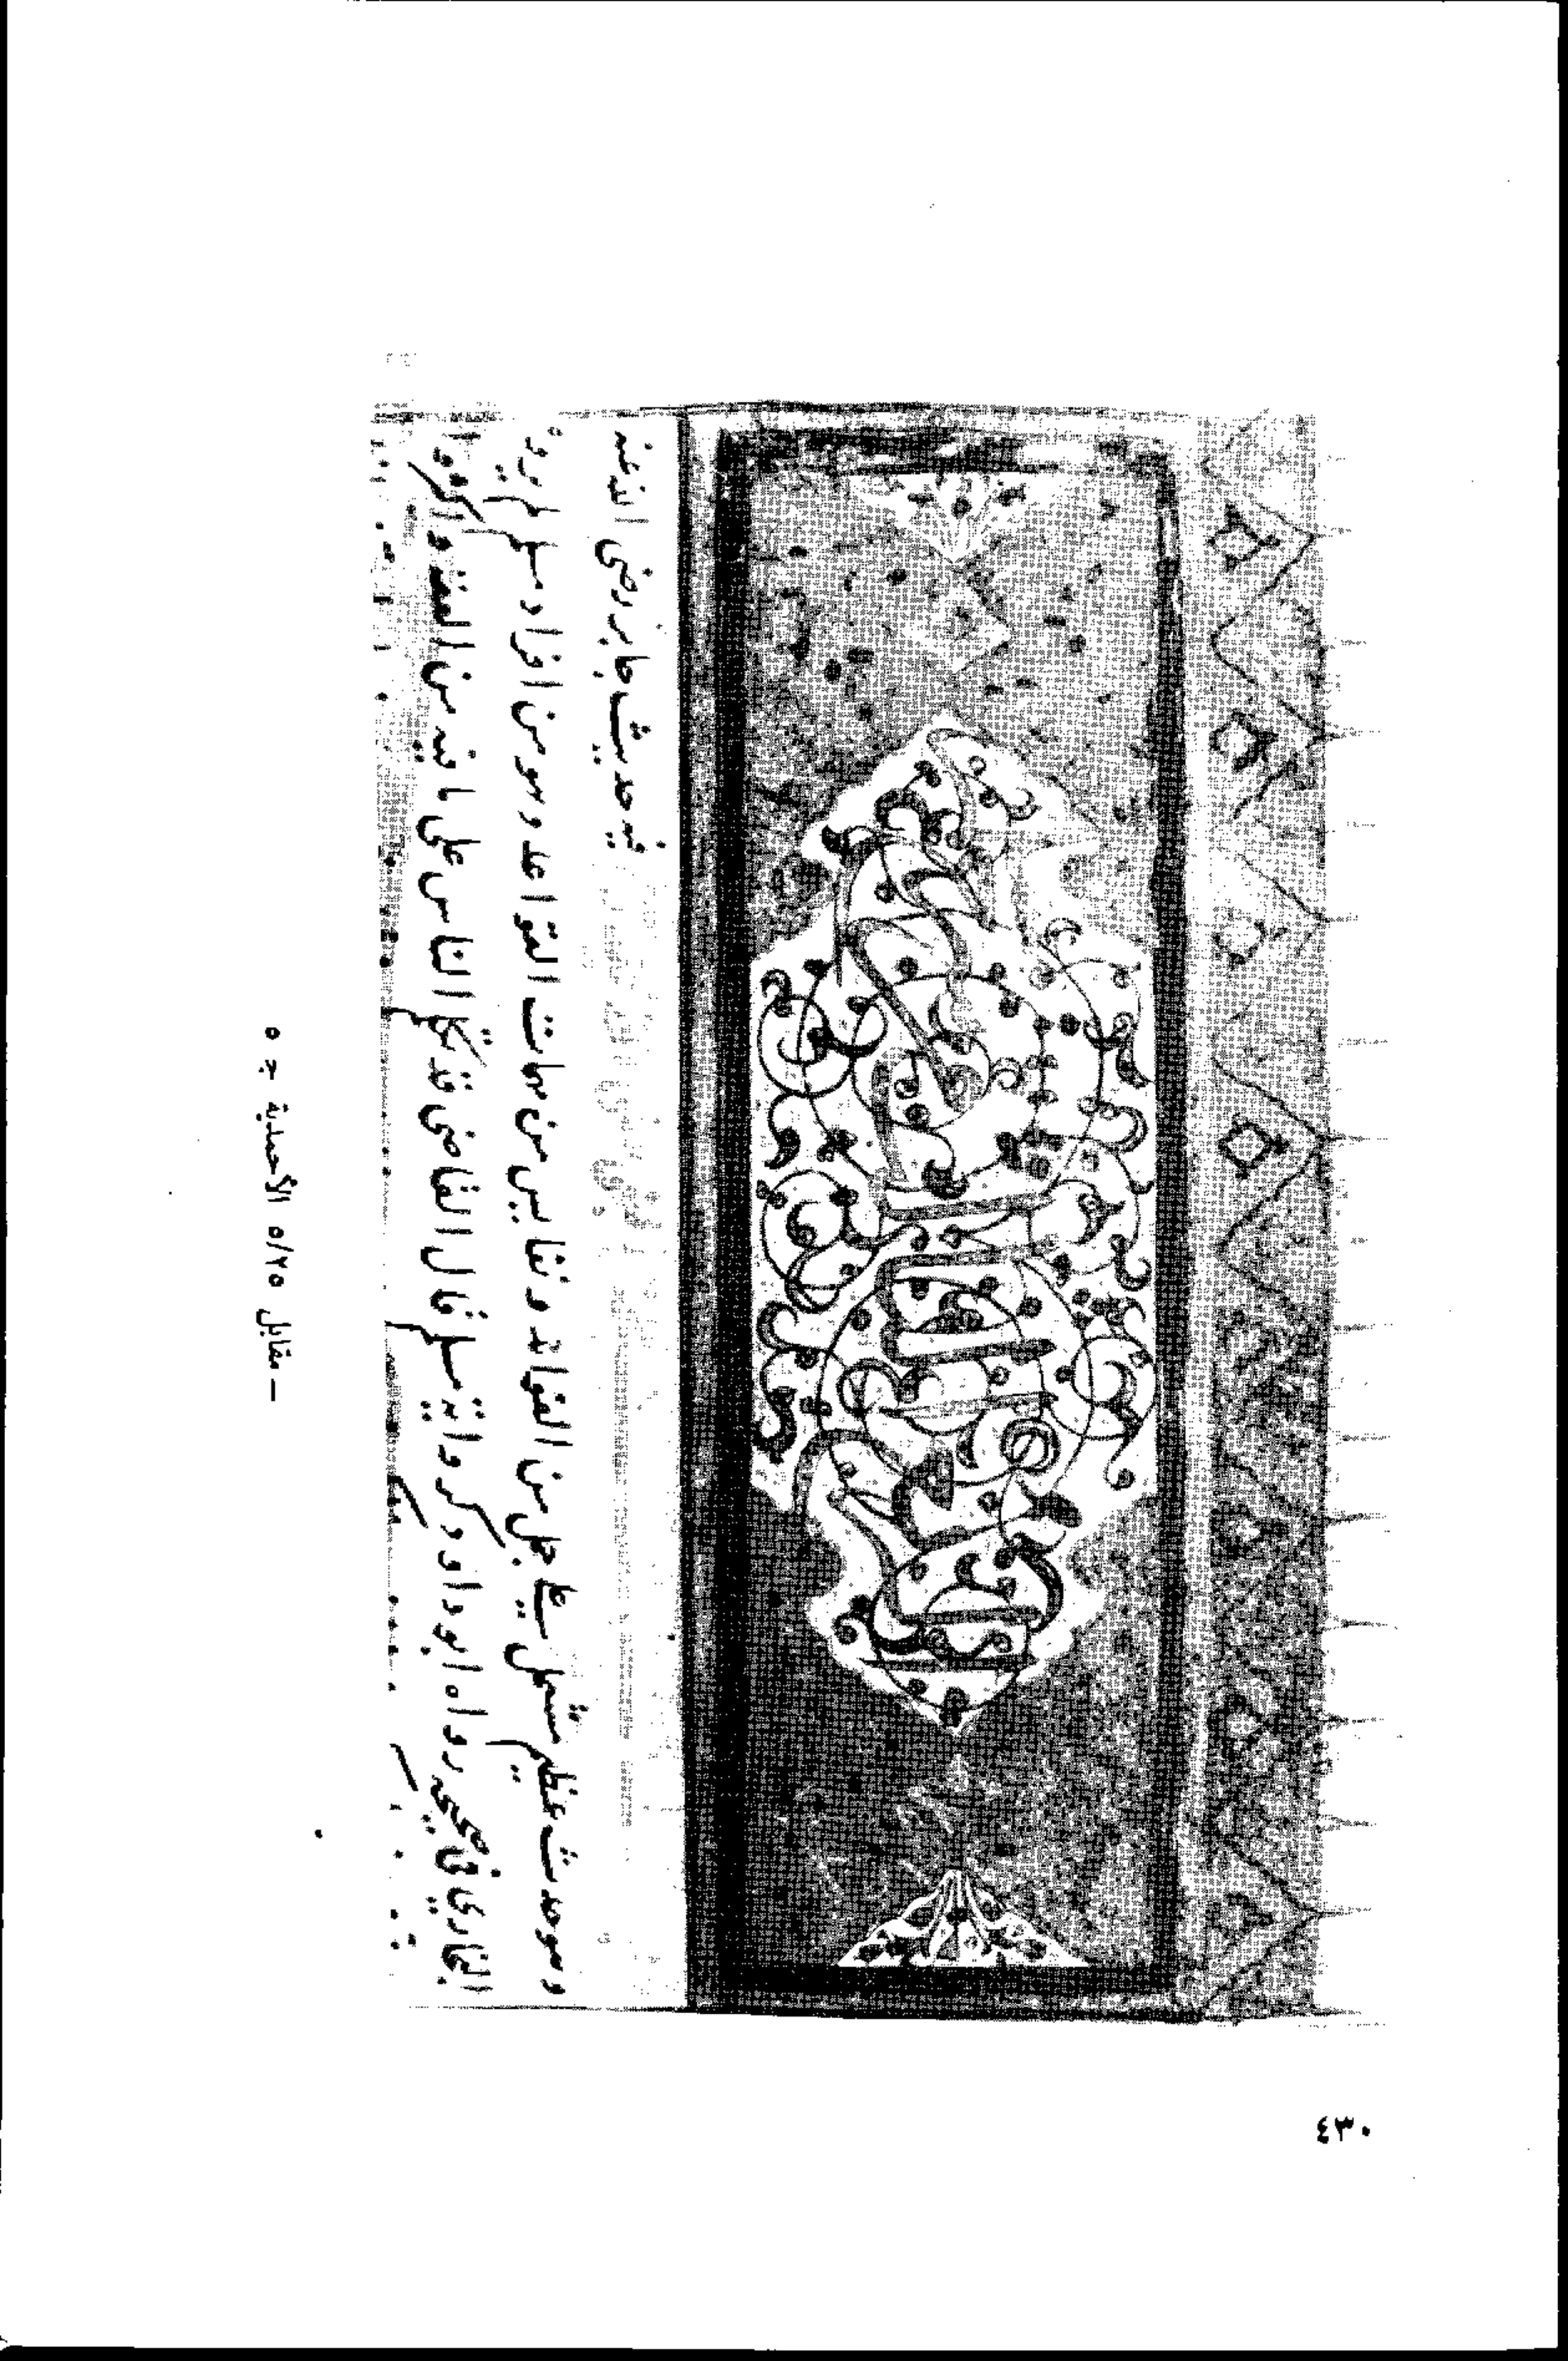 بسم الله الرحمن الرحيم
فيه حديث جابر رضى الله عنه
وهو حديث عظيم مشتمل على جمل من الفوايد ونفايس من مهمات القواعد وهو من افراد مسلم لم يروه
البخارى في صحيحه رواه ابو داود كرواية مسلم قال القاضى قد تكلم الناس على ما فيه من الفقه واكثروا
– مقابل ٥/٢٥ الأحمدية جـ ٥
٤٣٠